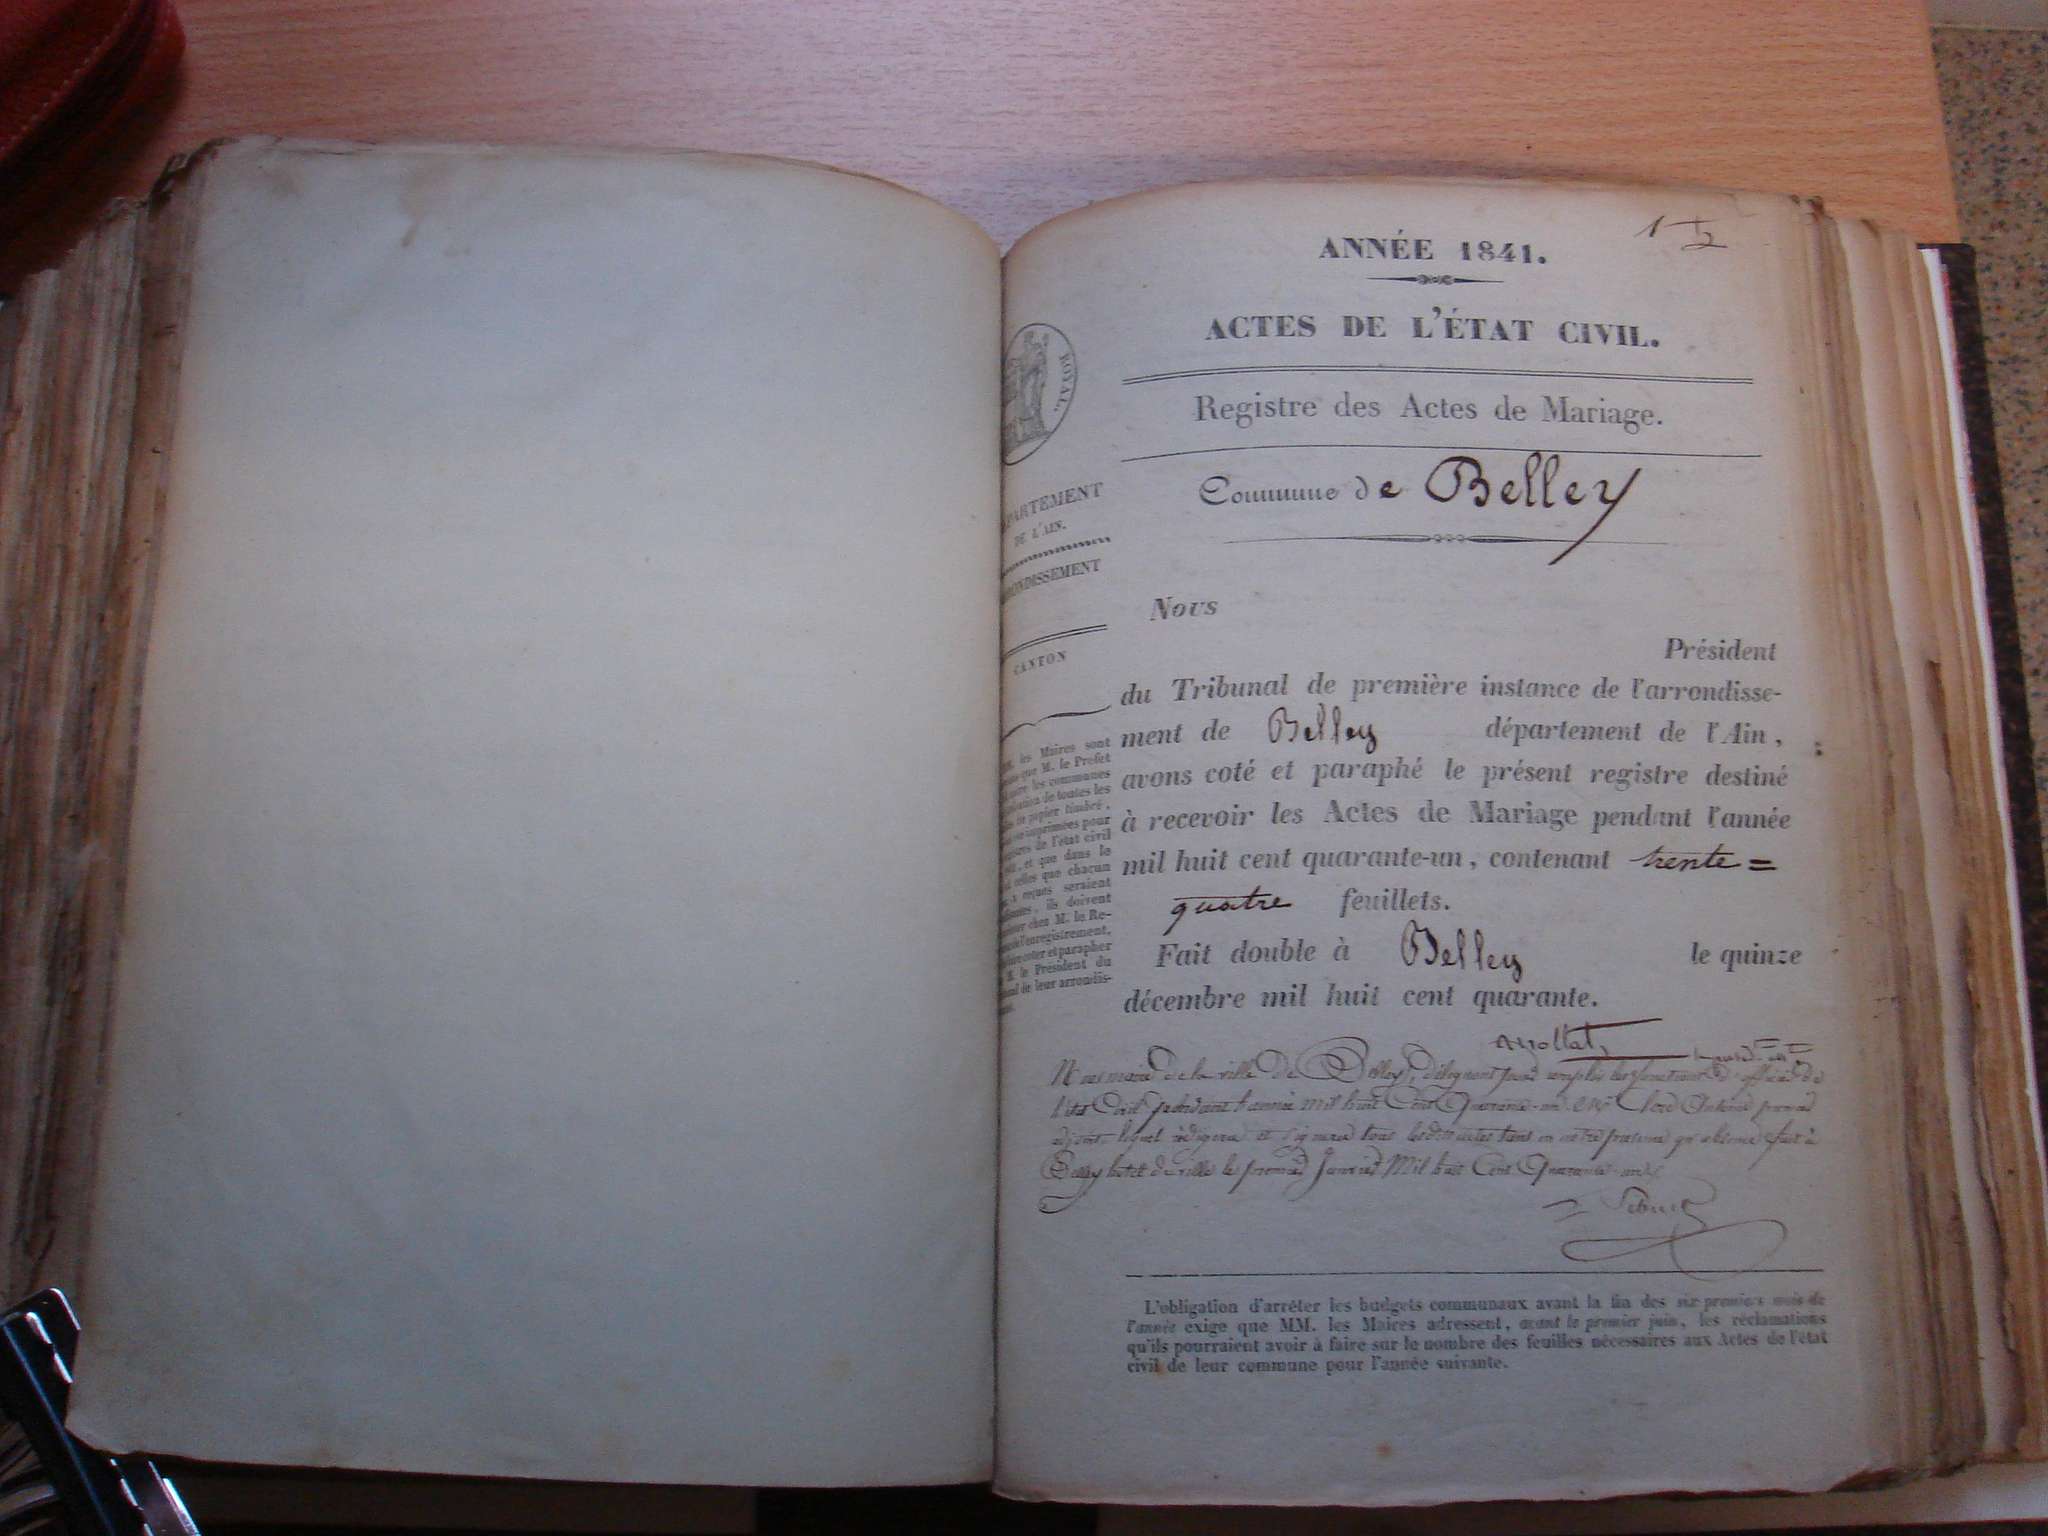 1
ANNÉE 1841.
ACTES DE L'ÉTAT CIVIL.
Registre des Actes de Mariage.
Commune de Belley
ROYAL.
PARTEMENT
DE L'AIN.
ONDISSEMENT
CANTON
les Maires sont
que M. le Préfet
les communes
de toutes les
de papier timbré,
imprimées pour
de l'état civil
, et que dans le
celles que chacun
reçues seraient
, ils doivent
chez M. le Re-
de l'enregistrement,
coter et parapher
le Président du
de leur arrondis-
Nous
Président
du Tribunal de première instance de l'arrondisse-
ment de Belley département de l'Ain,
avons coté et paraphé le présent registre destiné
à recevoir les Actes de Mariage pendant l'année
mil huit cent quarante-un, contenant trente=
quatre feuillets.
Fait double à Belley le quinze
décembre mil huit cent quarante.
Mollat
Nous maire de la ville de Belley, déléguons pour remplir les fonctions d'officier de
l'état Civil pendant l'année mil huit Cent Quarante-un
adjoint, lequel rédigera et signera tous les dits actes tant en notre présence qu'absence fait à
Belley hotel de ville le premier Janvier Mil huit Cent Quarante-un
L'obligation d'arrêter les budgets communaux avant la fin des six premiers mois de
l'année exige que MM. les Maires adressent, avant le premier juin, les réclamations
qu'ils pourraient avoir à faire sur le nombre des feuilles nécessaires aux Actes de l'état
civil de leur commune pour l'année suivante.